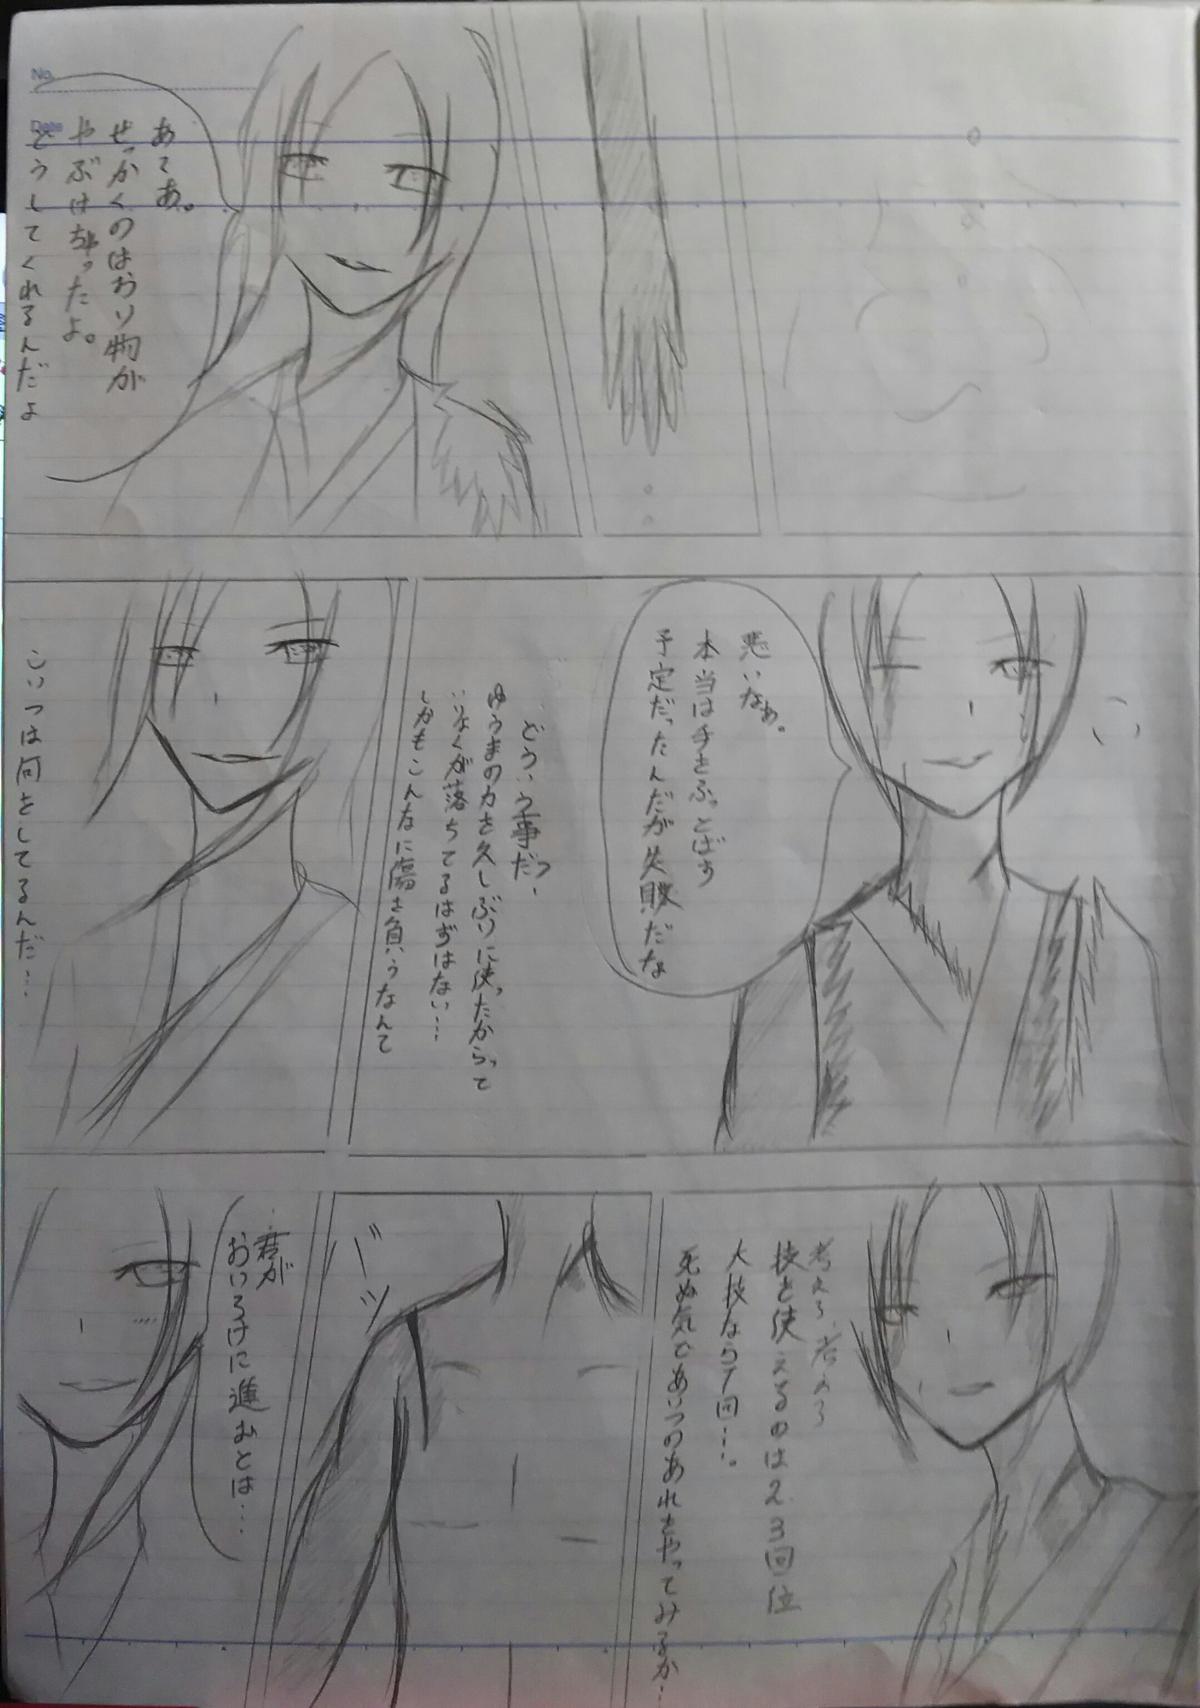 あてあ。
せっかくのはおり物が
やぶけちゃったよ。
どうしてくれるんだよ
悪いなぁ。
本当は手をふっとばす
予定だったんだが失敗だな
どういう事だっ、
ゆうまの力を久しぶりに使ったからって
いなくが落ちてるはずはない…
しかもこんなに傷を負うなんて
こいつは何をしてるんだ…
考えろ、考えろ
技を使えるのは2.3回位
大技なら1回…。
死ぬ気であいつのあれをやってみるか…
バッ
…君が
おいろけに進むとは…
No.
Date